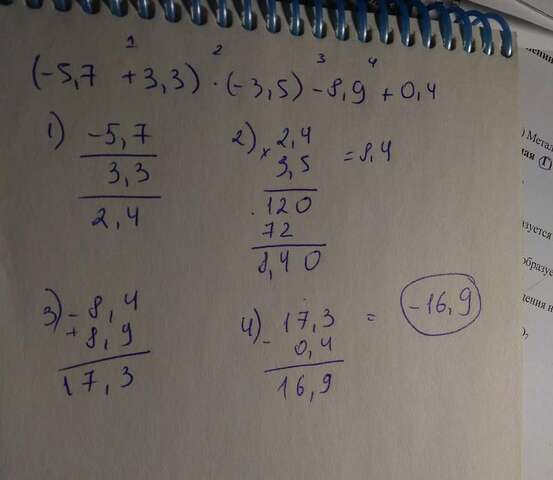 1 2 3 4
(-5,7 + 3,3) · (-3,5) - 8,9 + 0,4
1) -5,7
3,3
2,4
2) × 2,4 = 8,4
3,5
120
72
8,40
3) - 8,4
+ 8,9
17,3
4) - 17,3 = -16,9
0,4
16,9
) Метал
ная (1
азуется
образуе
дения н